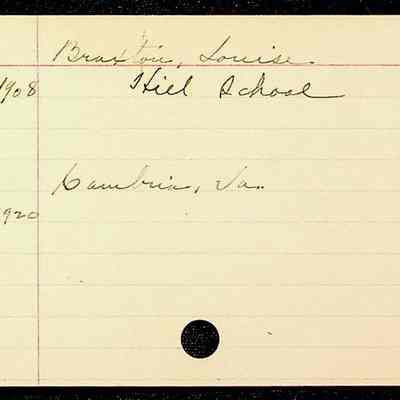 Braxton, Louise.
1908 Hill School
Cambria, Va.
1920